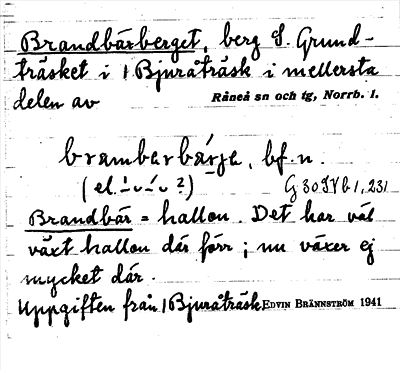 Brandbärberget, berg S. Grund-
träsket i 1 Bjuråträsk i mellersta
delen av Råneå sn och tg, Norrb. l.
brambarbärje, bf. n.
(el. ́ ᴗ ́ ᴗ ?) G 30 SV b 1, 231
Brandbär = hallon. Det har väl
växt hallon där förr; nu växer ej
mycket där.
Uppgiften från 1 Bjuråträsk EDVIN BRÄNNSTRÖM 1941